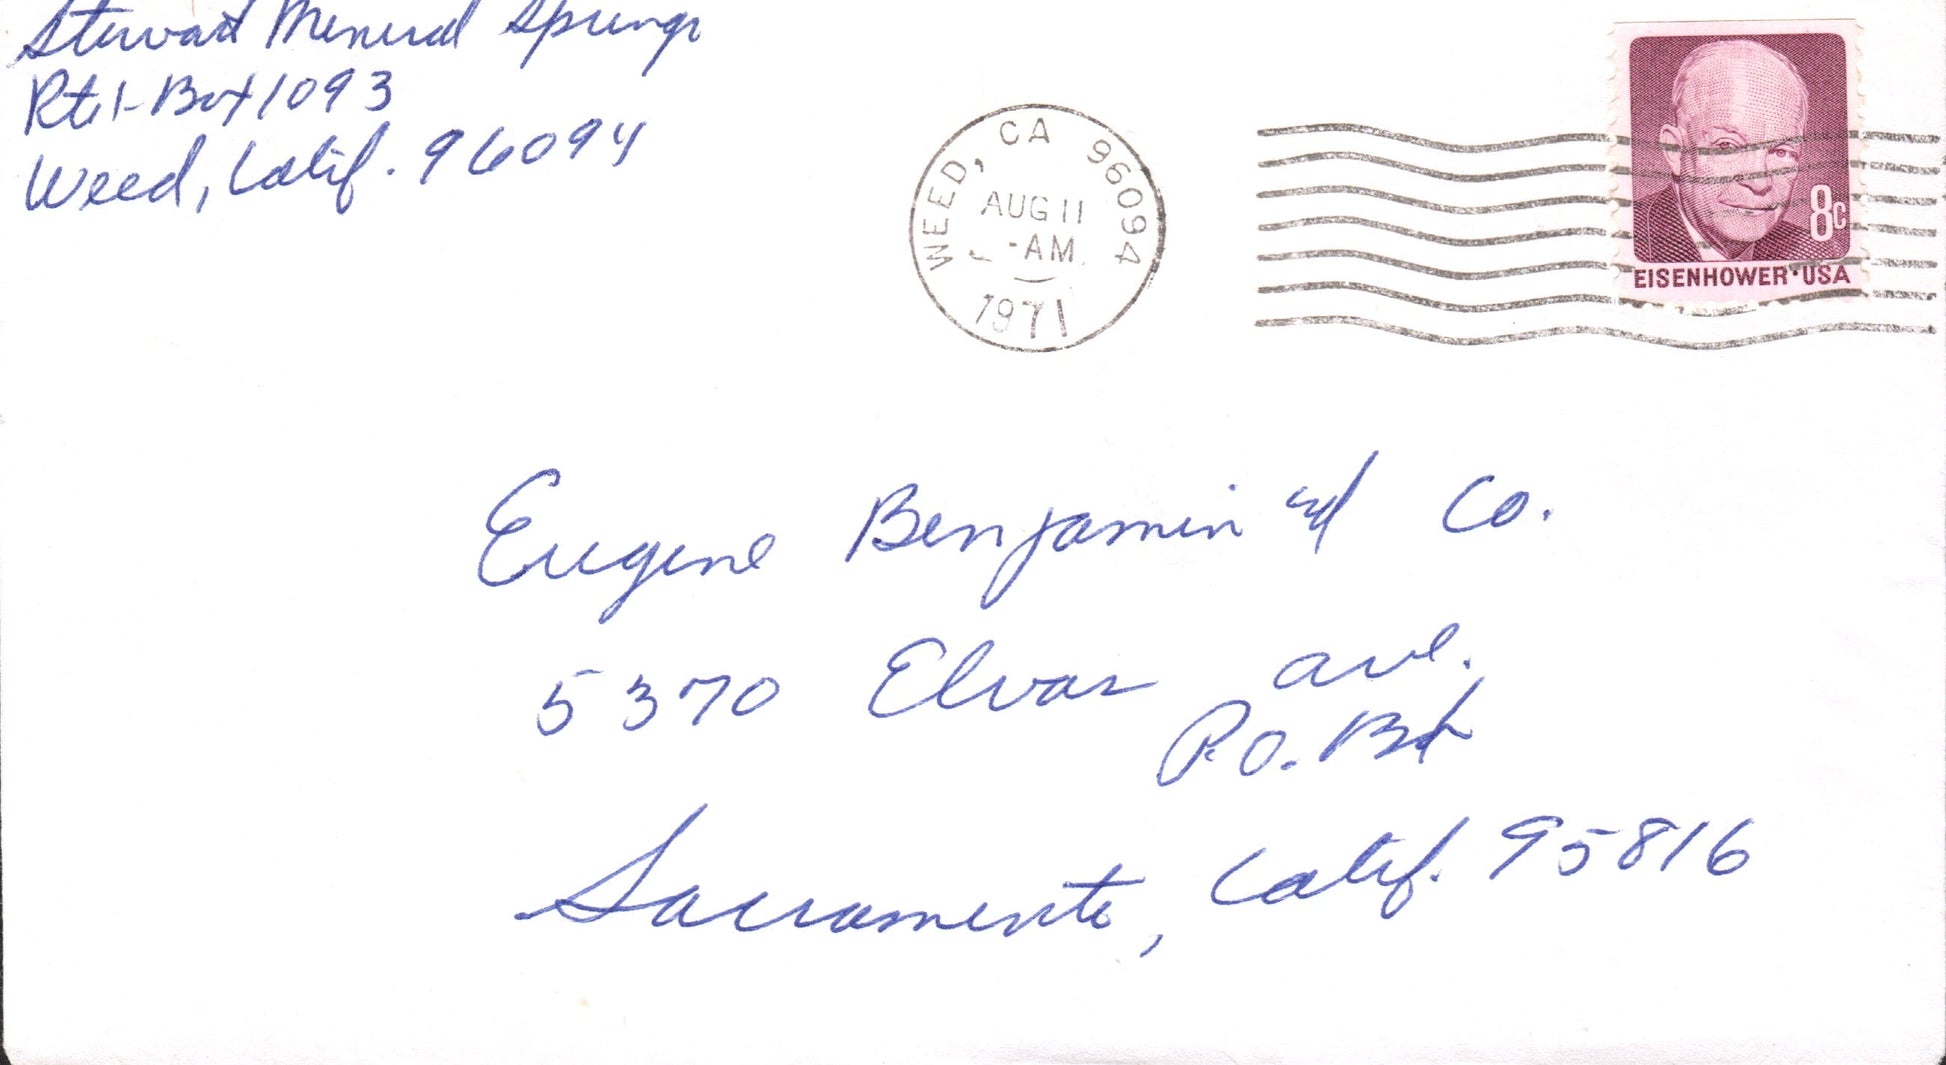 Stewart Mineral Springs
Rt. 1-Box 1093
Weed, Calif. 96094
WEED, CA 96094
AUG 11
-AM
1971
8c
EISENHOWER·USA
Eugene Benjamin and Co.
5370 Elvas Ave.
P.O. Bx
Sacramento, Calif. 95816